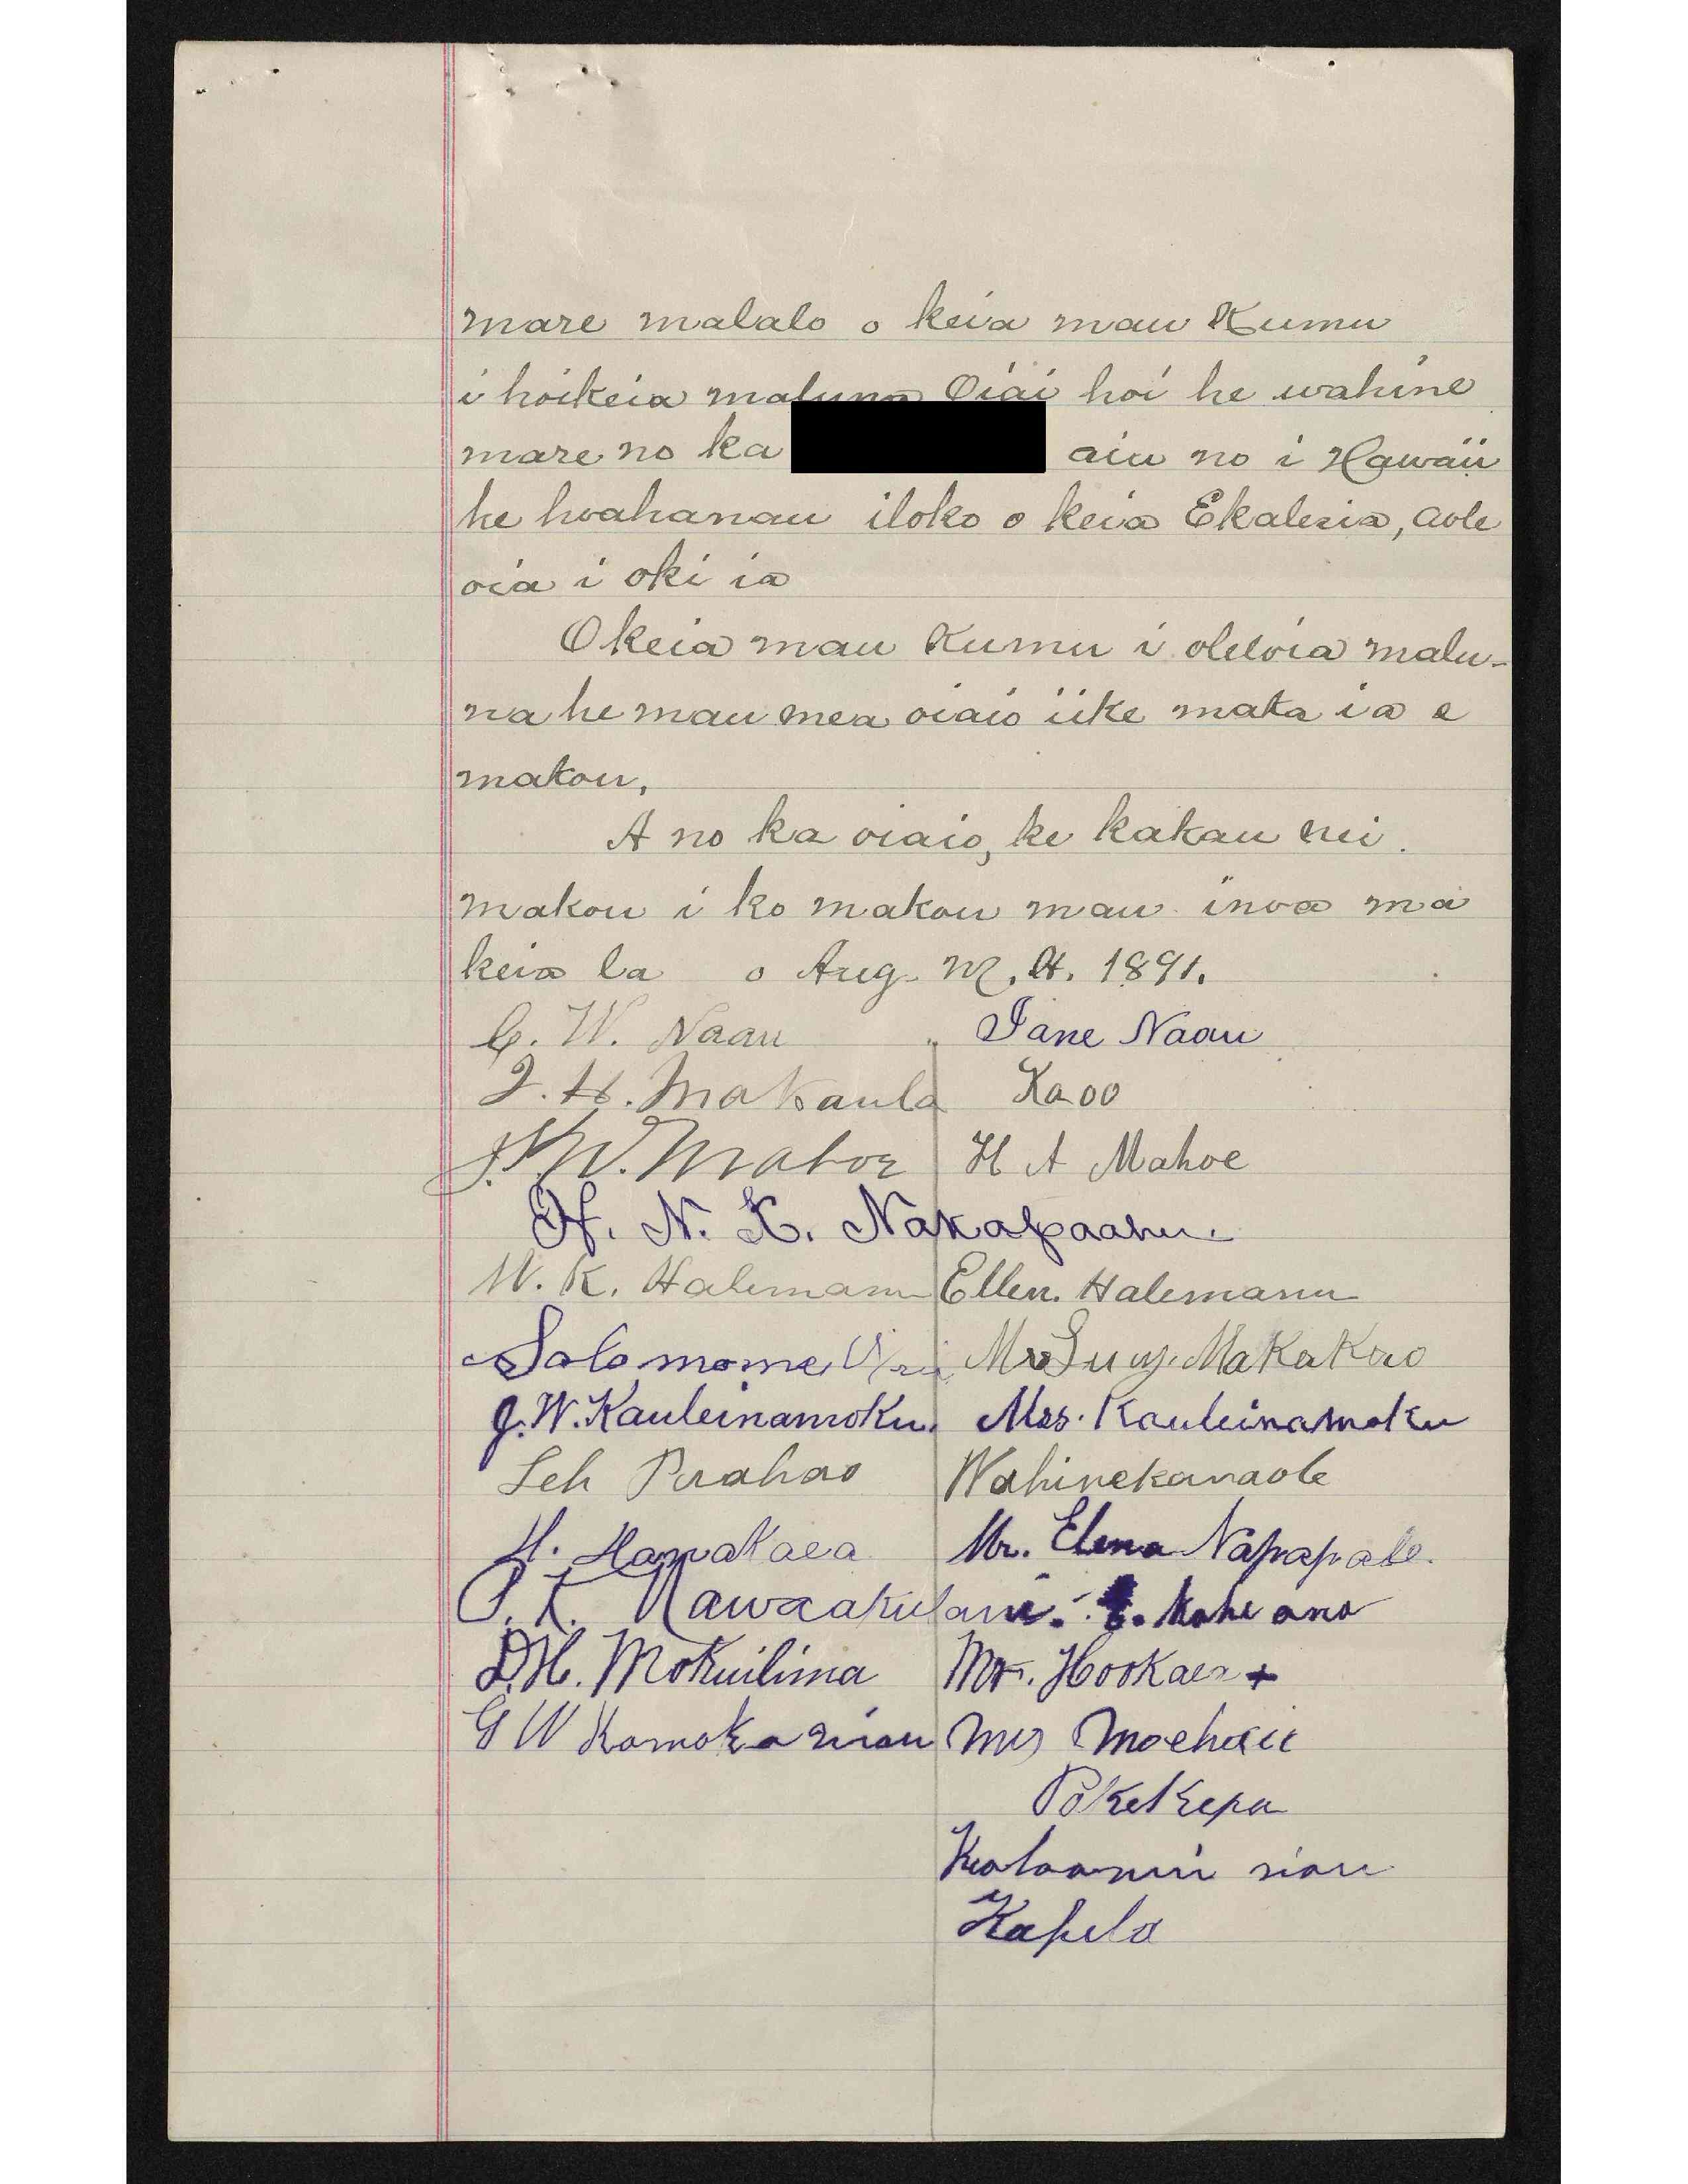 mare malalo o keia mau Kumu
i hoikeia maluna Oiai hoi he wahine
mare no ka aiu no i Hawaii
he hoahanau iloko o keia Ekalesia, aole
oia i oki ia
O keia mau Kumu i oleloia malu-
na he mau mea oiaio iike maka ia e
makou,
A no ka oiaio, ke kakau nei
makou i ko makou mau inoa ma
keia la o Aug. M. H. 1891.
C. W. Naau Jane Naau
J. H. Makaula Kaoo
J. W. Mahoe H A Mahoe
H. N. K. Nakapaahu
W. K. Halemanu Ellen. Halemanu
Solomome Mrs Lucy. Makakao
J. W. Kauleinamoku. Mrs. Kauleinamoku
Leh Puahao Wahinekanaole
H. Hapakaea Mr. Elena Napapale.
P. K. Nawaakulani. Kahe ana
D. H. Mokuilima Mr. Hookaea +
G W Kamoka niau Mrs Moehau
Pokekepa
niau
Kapela